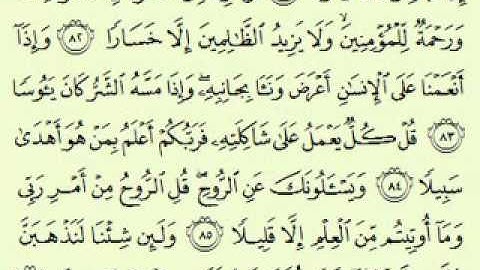 وَرَحْمَةٌ لِّلْمُؤْمِنِينَ ۙ وَلَا يَزِيدُ الظَّالِمِينَ إِلَّا خَسَارًا ۝٨٢ وَإِذَآ
أَنْعَمْنَا عَلَى الْإِنسَانِ أَعْرَضَ وَنَـَٔا بِجَانِبِهِۦ ۖ وَإِذَا مَسَّهُ الشَّرُّ كَانَ يَـُٔوسًا
۝٨٣ قُلْ كُلٌّ يَعْمَلُ عَلَىٰ شَاكِلَتِهِۦ فَرَبُّكُمْ أَعْلَمُ بِمَنْ هُوَ أَهْدَىٰ
سَبِيلًا ۝٨٤ وَيَسْـَٔلُونَكَ عَنِ الرُّوحِ ۖ قُلِ الرُّوحُ مِنْ أَمْرِ رَبِّى
وَمَآ أُوتِيتُم مِّنَ الْعِلْمِ إِلَّا قَلِيلًا ۝٨٥ وَلَئِن شِئْنَا لَنَذْهَبَنَّ